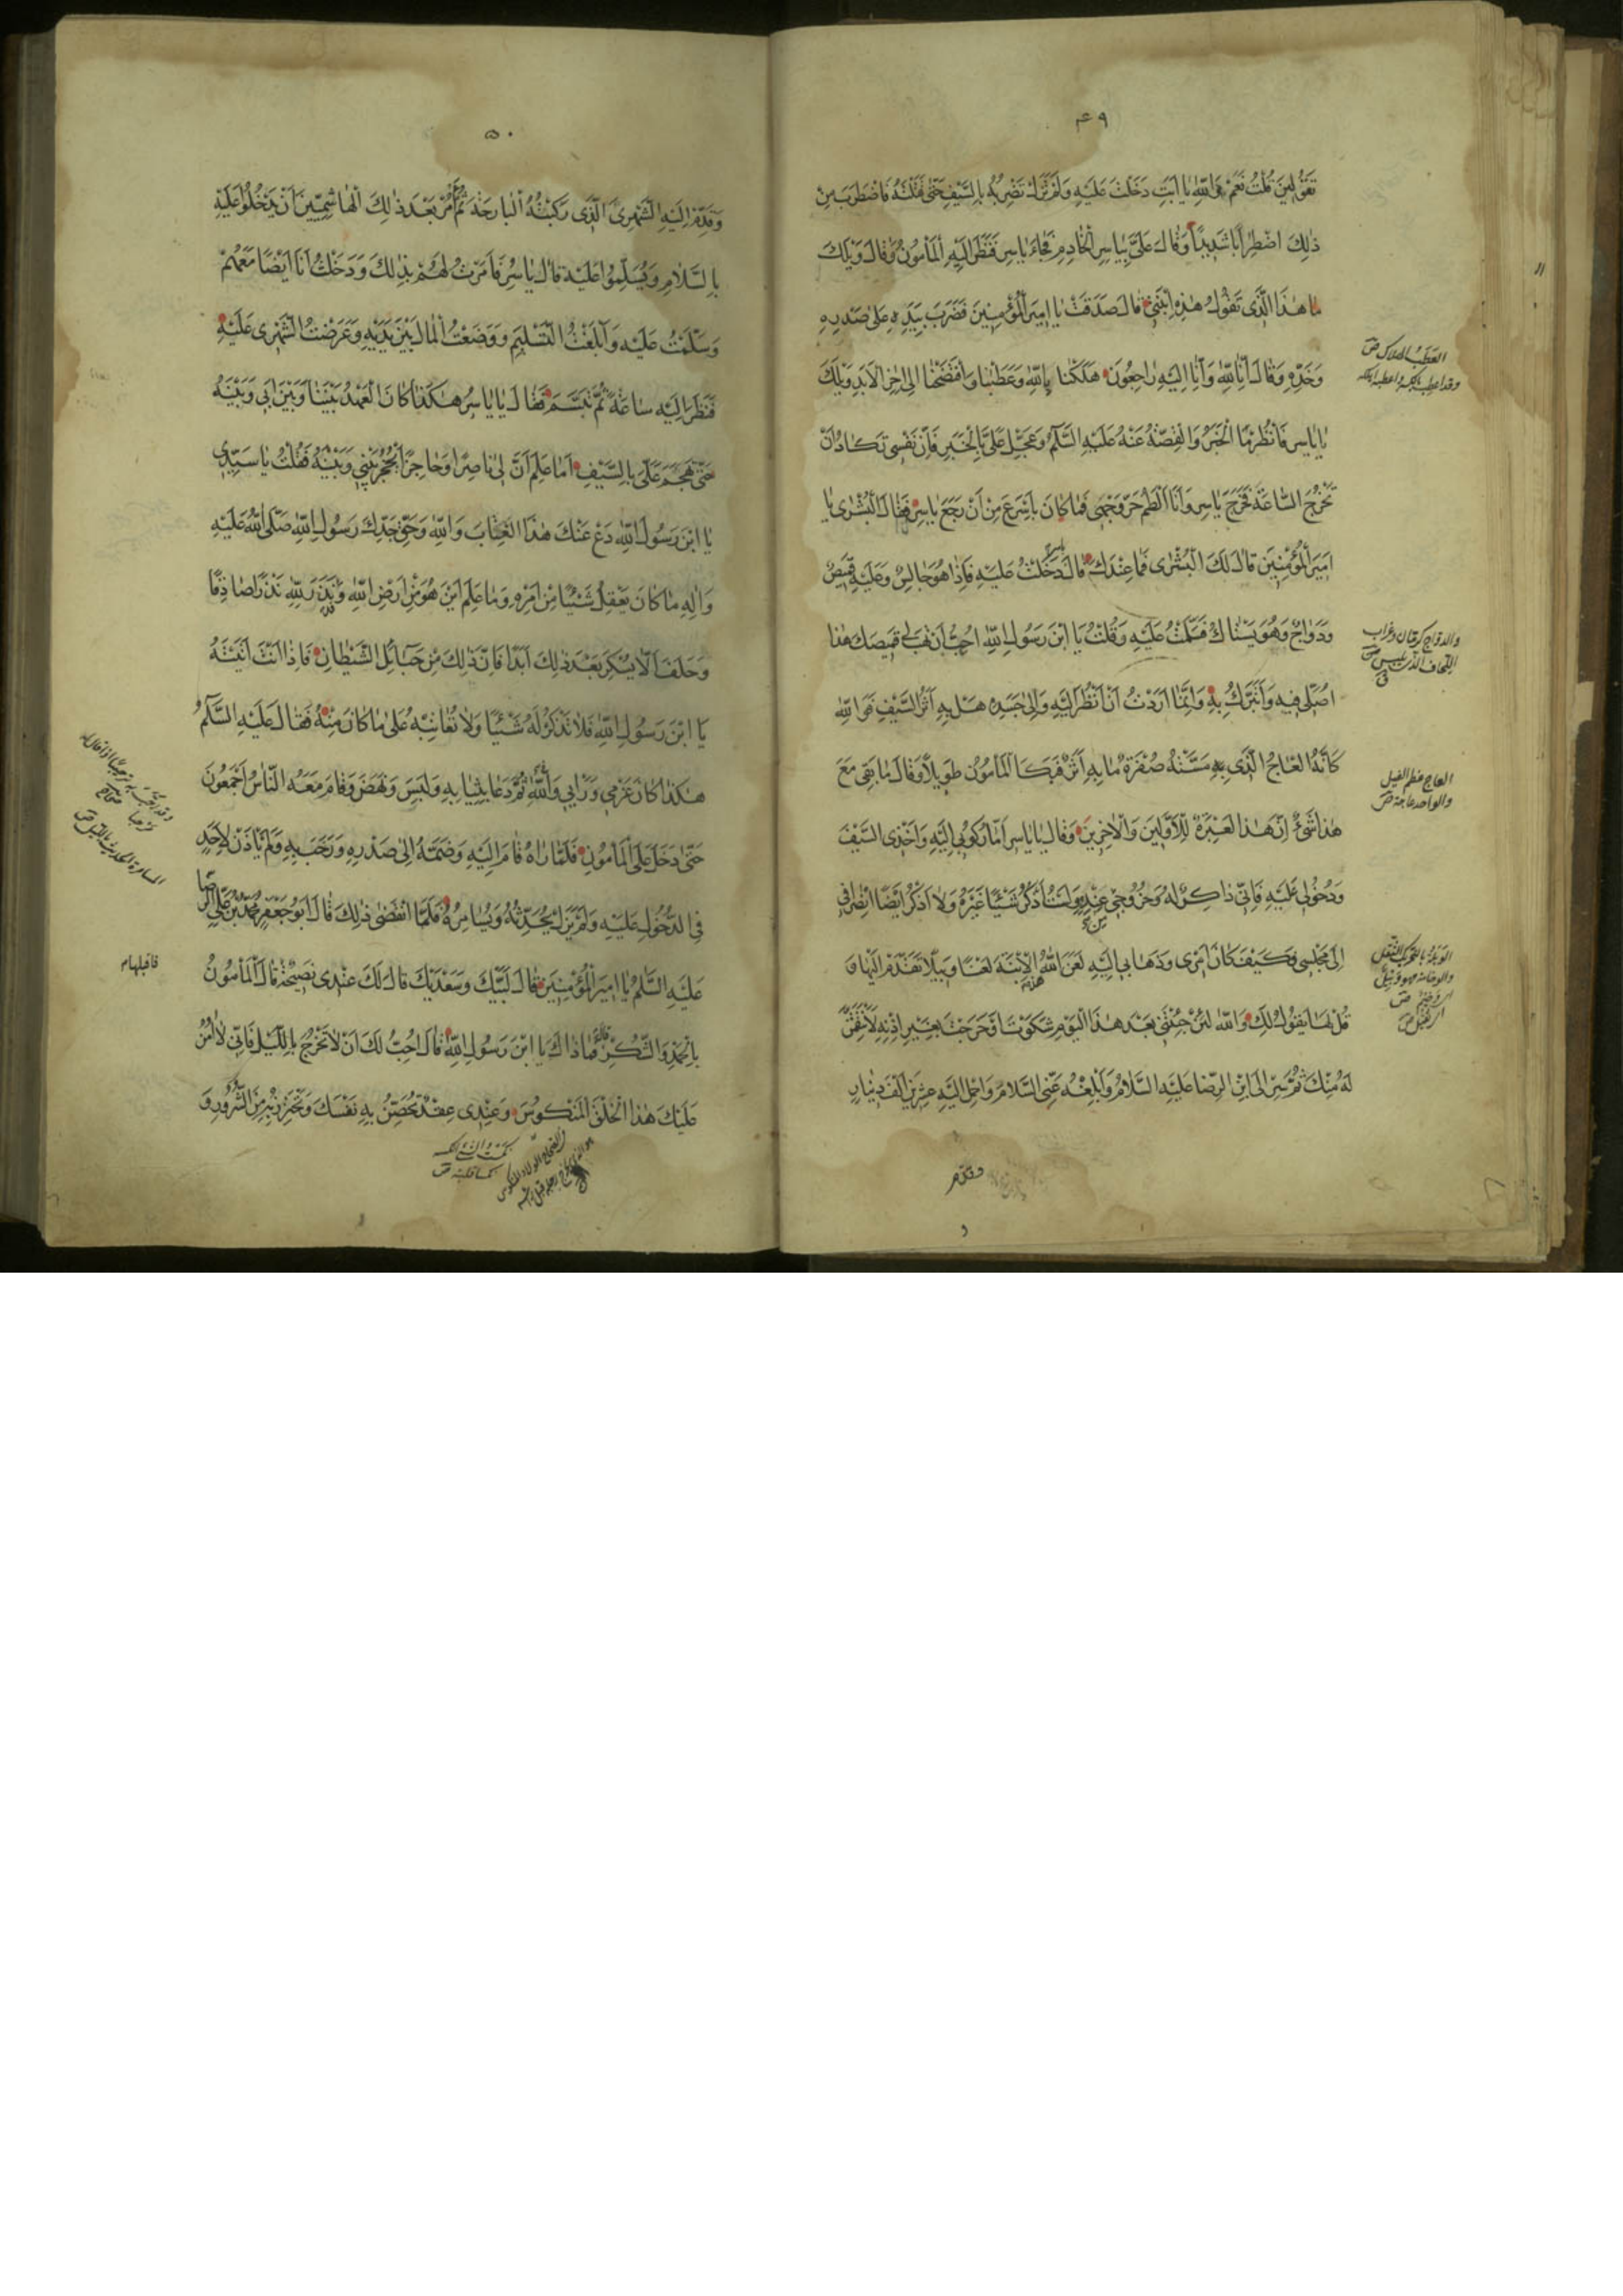 ۴۹
تَقُولِينَ قُلْتُ نَعَمْ وَاللّهِ يَا اَبَتِ دَخَلْتَ عَلَيْهِ وَلَمْ تَزَلْ تَضْرِبُهُ بِالسَّيْفِ حَتّى قَتَلْتَهُ فَاضْطَرَبَ مِنْ
ذلِكَ اضْطِرابًا شَدِيدًا وَقالَ عَلَيَّ بِياسِرِ الْخَادِمِ فَجاءَ ياسِرُ فَنَظَرَ اِلَيْهِ الْمَأْمُونُ وَقالَ وَيْلَكَ
ما هذَا الَّذِى تَقُولُ هذِهِ ابْنَتِى قالَ صَدَقَتْ يا اَمِيرَ الْمُؤْمِنِينَ فَضَرَبَ بِيَدِهِ عَلى صَدْرِهِ
وَخَدِّهِ وَقالَ اِنّا لِلّهِ وَاِنّا اِلَيْهِ راجِعُونَ هَلَكْنا بِاللّهِ وَعَطِبْنا وَافْتَضَحْنا اِلى اخِرِ الْاَبَدِ وَيْلَكَ
يا ياسِرُ فَانْظُرْ مَا الْخَبَرُ وَالْقِصَّةُ عَنْهُ عَلَيْهِ السَّلامُ وَعَجِّلْ عَلَيَّ بِالْخَبَرِ فَاِنَّ نَفْسِى تَكادُ اَنْ
تَخْرُجَ السّاعَةَ فَخَرَجَ ياسِرُ وَاَنَا اَلْطِمُ حُرَّ وَجْهِى فَما كانَ بِاَسْرَعَ مِنْ اَنْ رَجَعَ ياسِرُ فَقالَ الْبُشْرى يا
اَمِيرَ الْمُؤْمِنِينَ قالَ لَكَ الْبُشْرى فَما عِنْدَكَ قالَ ياسِرٌ دَخَلْتُ عَلَيْهِ فَاِذا هُوَ جالِسٌ وَعَلَيْهِ قَمِيصٌ
وَدَوَاجٌ وَهُوَ يَسْتاكُ فَسَلَّمْتُ عَلَيْهِ وَقُلْتُ يَا ابْنَ رَسُولِ اللّهِ اُحِبُّ اَنْ تَهَبَ لِى قَمِيصَكَ هذا
اُصَلِّى فِيهِ وَاَتَبَرَّكُ بِهِ وَاِنَّما اَرَدْتُ اَنْ اَنْظُرَ اِلَيْهِ وَاِلى جَسَدِهِ هَلْ بِهِ اَثَرُ السَّيْفِ فَوَ اللّهِ
كَاَنَّهُ الْعاجُ الَّذِى بِهِ مَسَّتْهُ صُفْرَةٌ ما بِهِ اَثَرٌ فَبَكَا الْمَأْمُونُ طَوِيلًا وَقالَ ما بَقِىَ مَعَ
هذا شَىْءٌ اِنَّ هذا لَعِبْرَةٌ لِلْاَوَّلِينَ وَالْاخِرِينَ وَقالَ يا ياسِرُ اَمّا رُكُوبِى اِلَيْهِ وَاَخْذِى السَّيْفَ
وَدُخُولِى عَلَيْهِ فَاِنِّى ذاكِرٌ لَهُ وَخُرُوجِى عَنْهُ وَلَسْتُ اَذْكُرُ شَيْئًا غَيْرَهُ وَلا اَذْكُرُ اَيْضًا انْصِرافِى
اِلى مَجْلِسِى فَكَيْفَ كانَ اَمْرِى وَذَهابِى اِلَيْهِ لَعَنَ اللّهُ هذِهِ الْاِبْنَةَ لَعْنًا وَبِيلًا تَقَدَّمْ اِلَيْها وَ
قُلْ لَها يَقُولُ لَكِ وَاللّهِ لَئِنْ جِئْتِنِى بَعْدَ هذَا الْيَوْمِ شَكَوْتِ اَوْ خَرَجْتِ بِغَيْرِ اِذْنِهِ لَاَنْتَقِمَنَّ
لَهُ مِنْكِ ثُمَّ سِرْ اِلَى ابْنِ الرِّضا عَلَيْهِ السَّلامُ وَاَبْلِغْهُ عَنِّى السَّلامَ وَاحْمِلْ اِلَيْهِ عِشْرِينَ اَلْفَ دِينارٍ
وقدّم
العطب الهلاك ص
العاج عظم الفيل
والواحد عاجة ص
۵۰
وَقَدِّمْ اِلَيْهِ الشِّهْرِىَّ الَّذِى رَكِبْتُهُ الْبارِحَةَ ثُمَّ أْمُرْ بَعْدَ ذلِكَ الْهاشِمِيِّينَ اَنْ يَدْخُلُوا عَلَيْهِ
بِالسَّلامِ وَيُسَلِّمُوا عَلَيْهِ قالَ ياسِرُ فَاَمَرْتُ لَهُمْ بِذلِكَ وَدَخَلْتُ اَنَا اَيْضًا مَعَهُمْ
وَسَلَّمْتُ عَلَيْهِ وَاَبْلَغْتُ التَّسْلِيمَ وَوَضَعْتُ الْمالَ بَيْنَ يَدَيْهِ وَعَرَضْتُ الشِّهْرِىَ عَلَيْهِ
فَنَظَرَ اِلَيْهِ ساعَةً ثُمَّ تَبَسَّمَ فَقالَ يا ياسِرُ هكَذا كانَ الْعَهْدُ بَيْنَنا وَبَيْنَ اَبِى وَبَيْنَهُ
حَتّى هَجَمَ عَلَىَّ بِالسَّيْفِ اَما عَلِمَ اَنَّ لِى ناصِرًا وَحاجِزًا يَحْجُزُ بَيْنِى وَبَيْنَهُ فَقُلْتُ يا سَيِّدِى
يَا ابْنَ رَسُولِ اللّهِ دَعْ عَنْكَ هذَا الْعِتابَ وَاللّهِ وَحَقِّ جَدِّكَ رَسُولِ اللّهِ صَلَّى اللّهُ عَلَيْهِ
وَالِهِ ما كانَ يَعْقِلُ شَيْئًا مِنْ اَمْرِهِ وَما عَلِمَ اَيْنَ هُوَ مِنْ اَرْضِ اللّهِ وَقَدْ نَذَرَ لِلّهِ نَذْرًا صادِقًا
وَحَلَفَ اَلّا يَسْكَرَ بَعْدَ ذلِكَ اَبَدًا فَاِنَّ ذلِكَ مِنْ حَبائِلِ الشَّيْطانِ فَاِذا اَنْتَ اَتَيْتَهُ
يَا ابْنَ رَسُولِ اللّهِ فَلا تَذْكُرْ لَهُ شَيْئًا وَلا تُعاتِبْهُ عَلى ما كانَ مِنْهُ فَقالَ عَلَيْهِ السَّلامُ
هكَذا كانَ عَزْمِى وَرَاْيِى وَاللّهِ ثُمَّ دَعا بِثِيابِهِ وَلَبِسَ وَنَهَضَ وَقامَ مَعَهُ النّاسُ اَجْمَعُونَ
حَتّى دَخَلَ عَلَى الْمَأْمُونِ فَلَمّا رَاهُ قامَ اِلَيْهِ وَضَمَّهُ اِلى صَدْرِهِ وَرَحَّبَ بِهِ وَلَمْ يَأْذَنْ لِاَحَدٍ
فِى الدُّخُولِ عَلَيْهِ وَلَمْ يَزَلْ يُحَدِّثُهُ وَيُسامِرُهُ فَلَمَّا انْقَضى ذلِكَ قالَ اَبُو جَعْفَرٍ مُحَمَّدُ بْنُ عَلِىٍّ الرِّضا
عَلَيْهِ السَّلامُ يا اَمِيرَ الْمُؤْمِنِينَ قالَ لَبَّيْكَ وَسَعْدَيْكَ قالَ لَكَ عِنْدِى نَصِيحَةٌ قالَ الْمَأْمُونُ
بِالْحَمْدِ وَالشُّكْرِ فَما ذاكَ يَا ابْنَ رَسُولِ اللّهِ قالَ اُحِبُّ لَكَ اَنْ لا تَخْرُجَ بِاللَّيْلِ فَاِنِّى لا امَنُ
عَلَيْكَ هذَا الْخَلْقَ الْمَنْكُوسَ وَعِنْدِى عِقْدٌ تُحَصِّنُ بِهِ نَفْسَكَ وَتَحْتَرِزُ بِهِ مِنَ الشُّرُورِ وَ
فاقبلها م